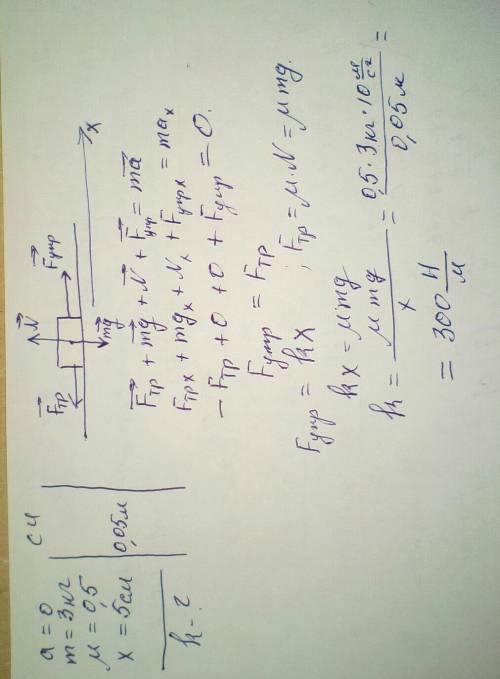 a = 0
m = 3 кг
μ = 0,5
x = 5 см
k - ?
СИ
0,05 м
F⃗тр
N⃗
F⃗упр
m⃗g
X
F⃗тр + m⃗g + N⃗ + F⃗упр = ma⃗
Fтрx + mgx + Nx + Fупрx = max
– Fтр + 0 + 0 + Fупр = 0.
Fупр = Fтр
Fупр = kx ; Fтр = μ·N = μmg.
kx = μmg
k = μmg / x = 0,5·3кг·10 м/с² / 0,05 м =
= 300 Н/м